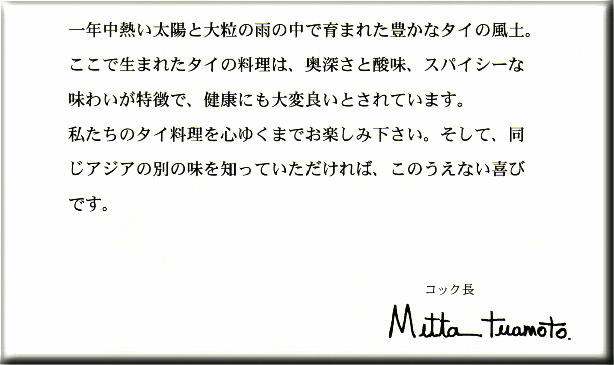 一年中熱い太陽と大粒の雨の中で育まれた豊かなタイの風土。
ここで生まれたタイの料理は、奥深さと酸味、スパイシーな
味わいが特徴で、健康にも大変良いとされています。
私たちのタイ料理を心ゆくまでお楽しみ下さい。そして、同
じアジアの別の味を知っていただければ、このうえない喜び
です。
コック長
Mitta tuamoto.